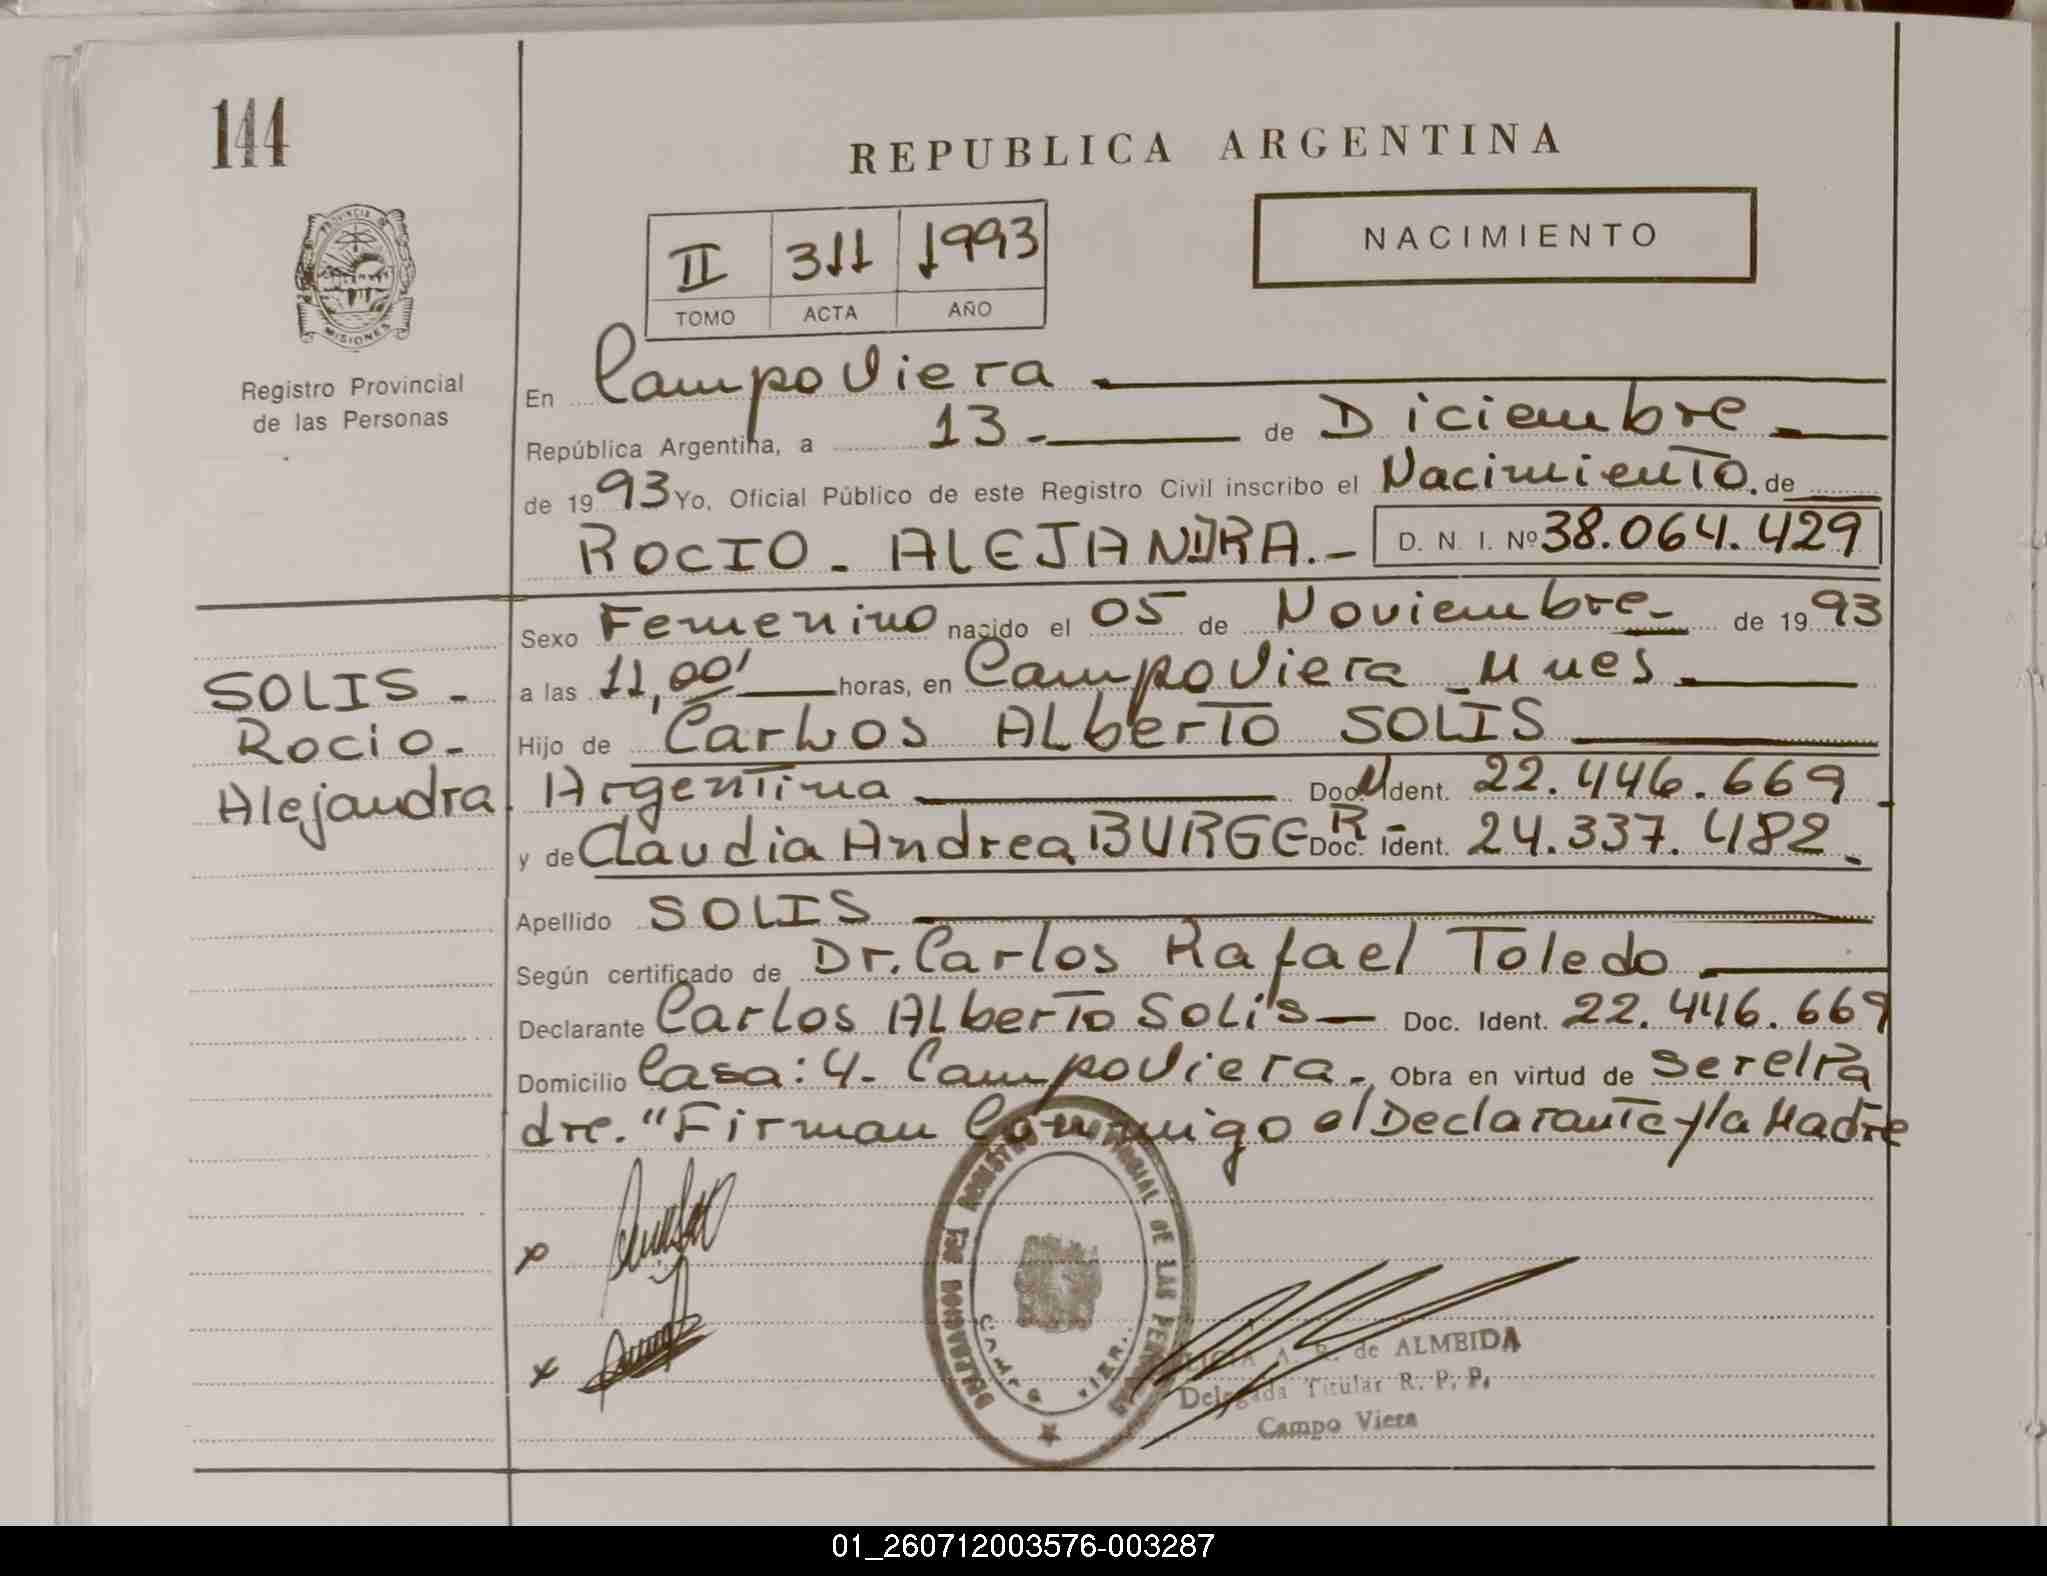 144
REPUBLICA ARGENTINA
NACIMIENTO
II 311 1993
TOMO ACTA AÑO
PROVINCIA DE
MISIONES
Registro Provincial
de las Personas
En Campo Viera
República Argentina, a 13 - de Diciembre
de 1993 Yo, Oficial Público de este Registro Civil inscribo el Nacimiento. de
ROCIO - ALEJANDRA.- D. N. I. Nº 38.064.429
Sexo Femenino nacido el 05 de Noviembre - de 1993
SOLIS -
Rocio -
Alejandra.
a las 11,00' horas, en Campo Viera Mnes
Hijo de Carlos ALberTo SOLIS
Argentina Doc M Ident. 22.446.669
y de Claudia Andrea BURGER - Doc. Ident. 24.337.482.
Apellido SOLIS
Según certificado de Dr. Carlos Rafael Toledo
Declarante Carlos ALberTo Solis — Doc. Ident. 22.446.669
Domicilio Casa: 4 - Campo Viera -, Obra en virtud de Ser el Pa
dre. "Firman Conmigo el Declarante y la Madre
DEL REGISTRO PROVINCIAL DE LAS
CAMPO VIERA
A. R. de ALMEIDA
Delegada Titular R. P. P.
Campo Viera
01_260712003576-003287